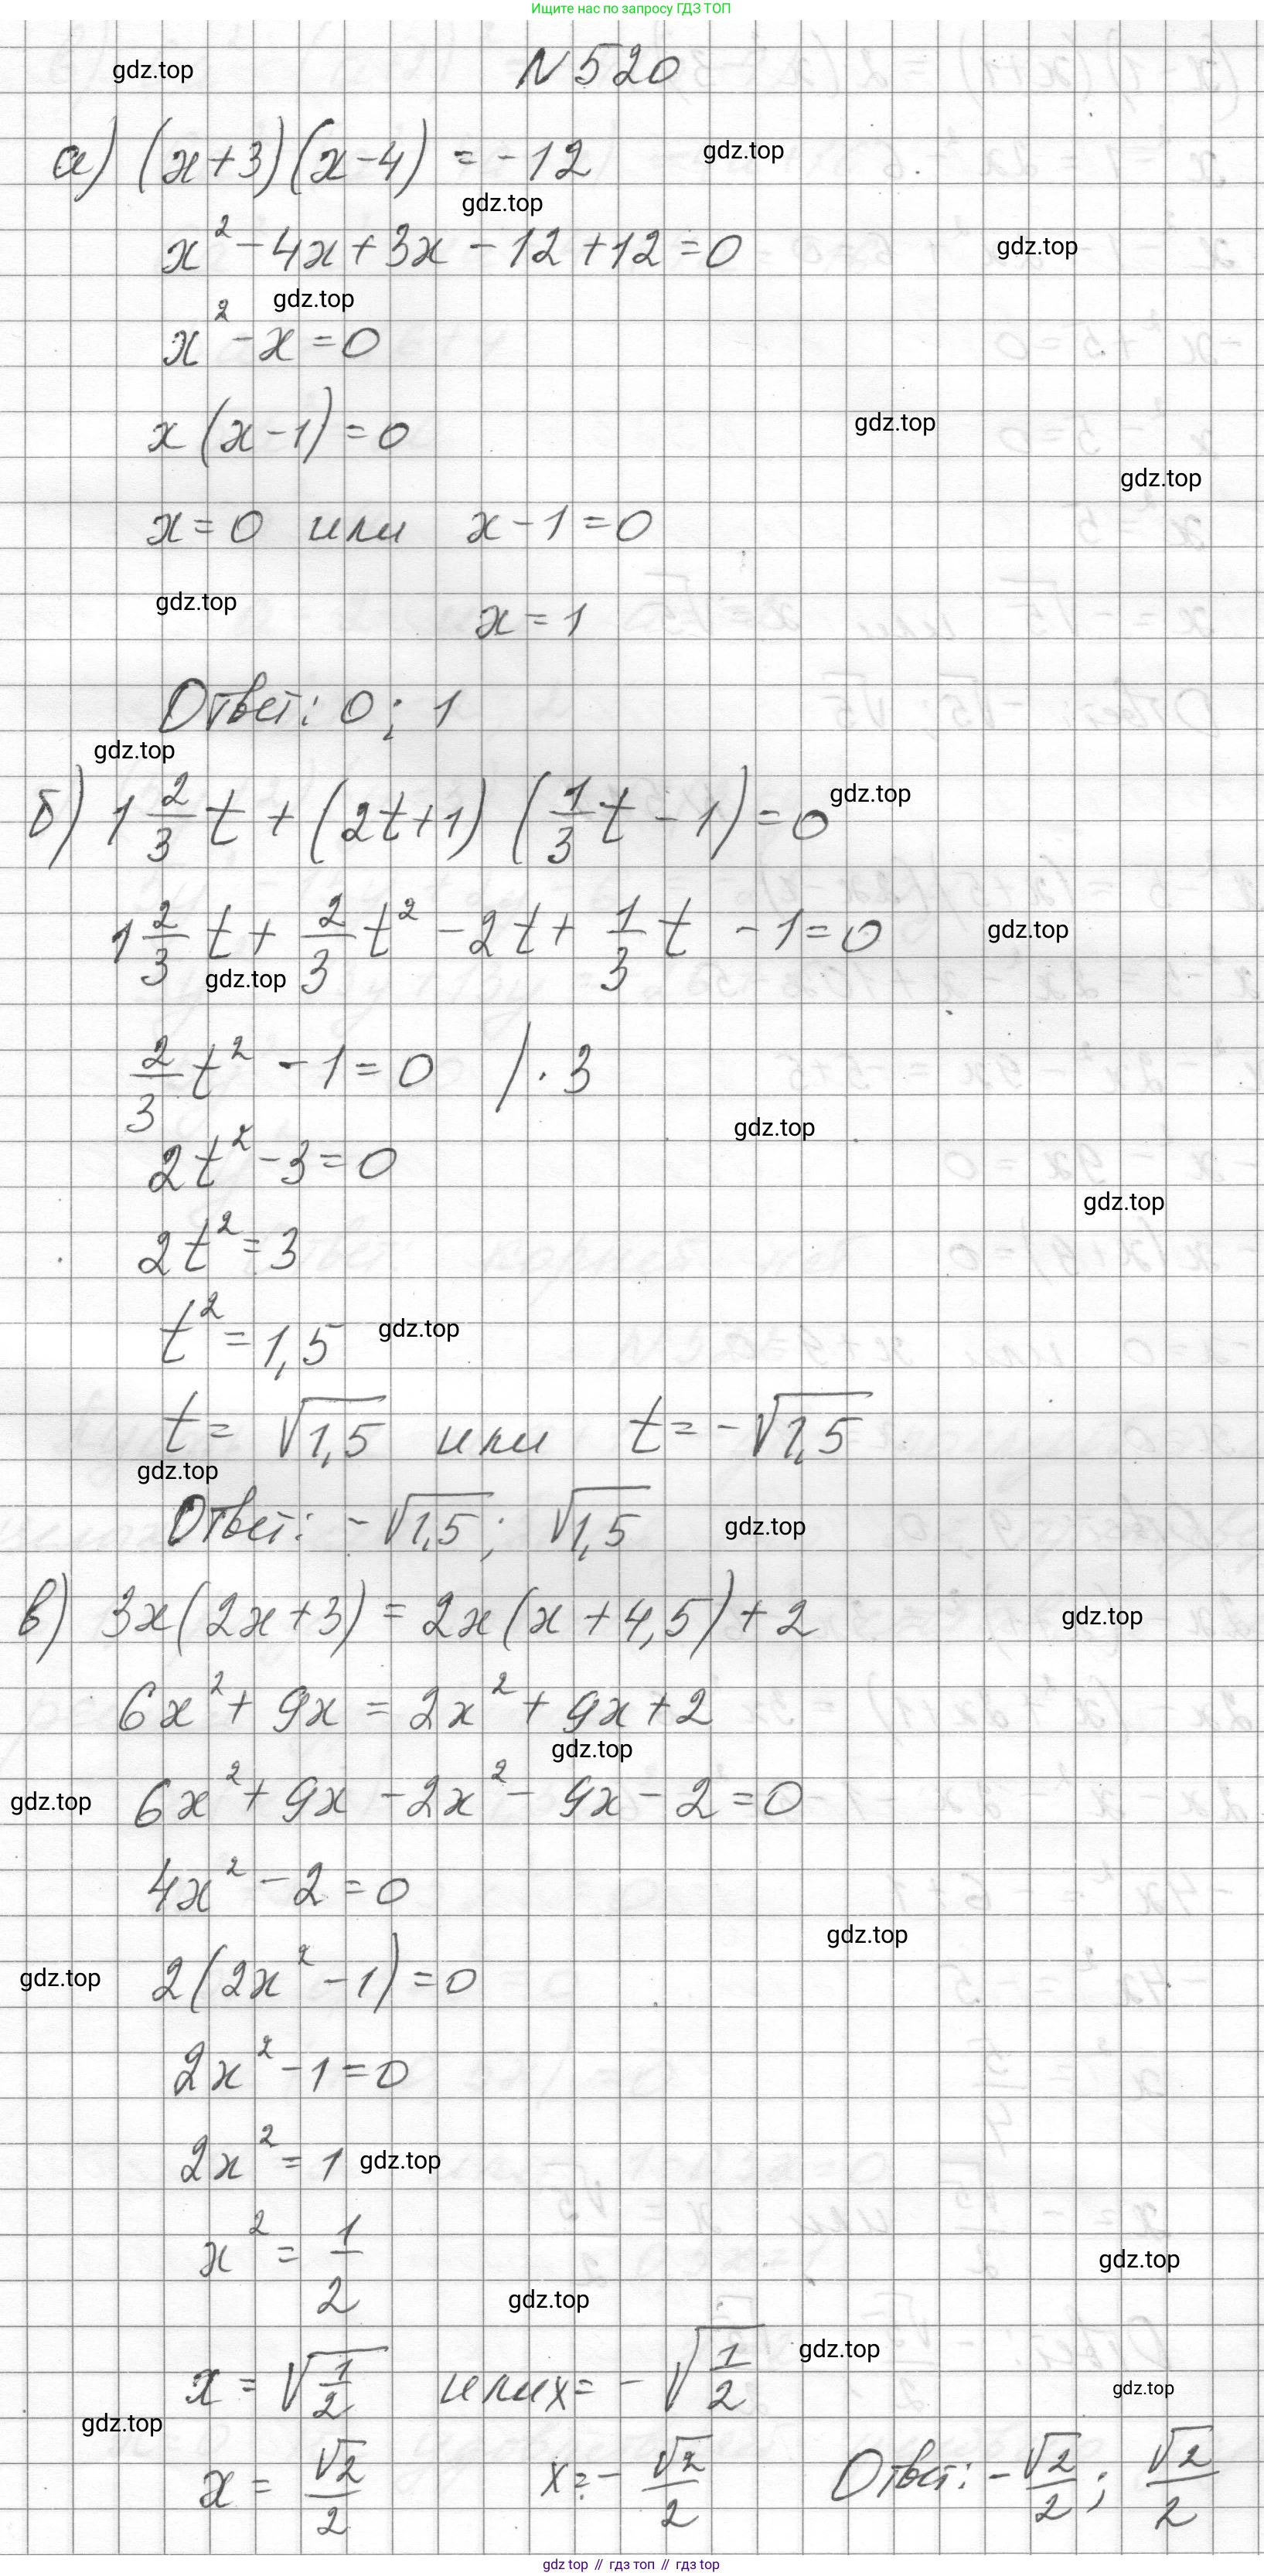 Ищите нас по запросу ГДЗ ТОП
N 520
gdz.top
а) (x+3)(x-4) = -12
gdz.top
gdz.top
x² - 4x + 3x - 12 + 12 = 0
gdz.top
gdz.top
x² - x = 0
x(x-1) = 0
gdz.top
gdz.top
x = 0 или x - 1 = 0
gdz.top
x = 1
Ответ: 0; 1
gdz.top
б) 1 2/3 t + (2t+1)(1/3 t - 1) = 0
gdz.top
1 2/3 t + 2/3 t² - 2t + 1/3 t - 1 = 0
gdz.top
gdz.top
2/3 t² - 1 = 0 / · 3
gdz.top
2t² - 3 = 0
gdz.top
2t² = 3
t² = 1,5
gdz.top
t = √1,5 или t = -√1,5
gdz.top
Ответ: -√1,5; √1,5
gdz.top
в) 3x(2x+3) = 2x(x+4,5)+2
gdz.top
6x² + 9x = 2x² + 9x + 2
gdz.top
gdz.top
6x² + 9x - 2x² - 9x - 2 = 0
4x² - 2 = 0
gdz.top
gdz.top
2(2x² - 1) = 0
2x² - 1 = 0
2x² = 1
gdz.top
x² = 1/2
gdz.top
gdz.top
x = √1/2 или x = -√1/2
gdz.top
gdz.top
gdz.top
x = √2/2 x = -√2/2 Ответ: -√2/2; √2/2
gdz top // гдз топ // gdz top